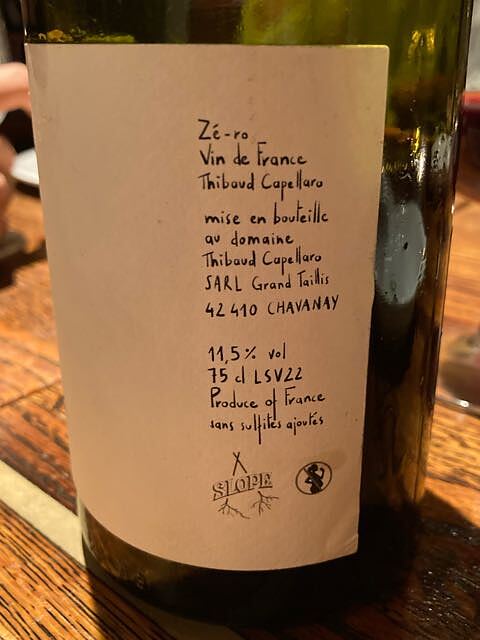 Zé-ro
Vin de France
Thibaud Capellaro
mise en bouteille
au domaine
Thibaud Capellaro
SARL Grand Taillis
42 410 CHAVANAY
11,5% vol
75 cl LSV22
Produce of France
sans sulfites ajoutés
SLOPE